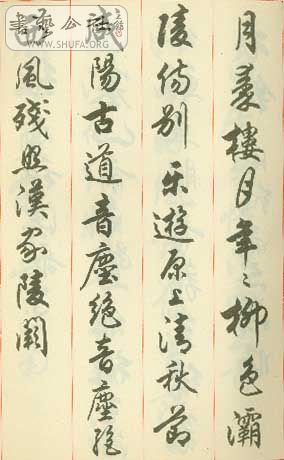 月秦樓月年〻柳色灞
陵傷別樂遊原上清秋節
咸陽古道音塵絕音塵絕
西風殘照漢家陵闕
書藝公社
WWW.SHUFA.ORG